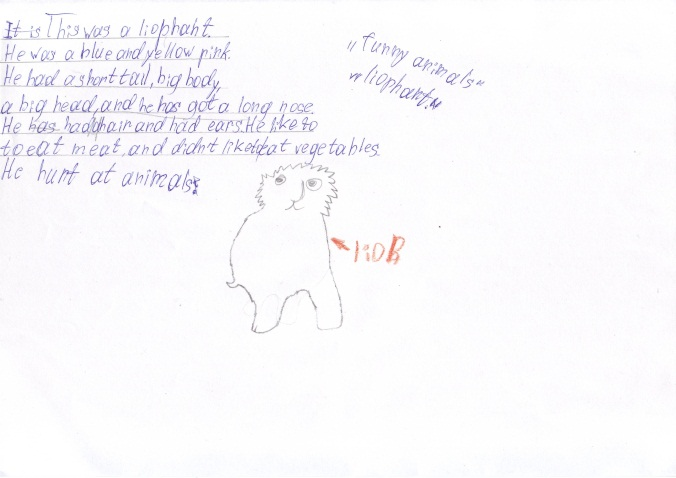 It is This was a liophant.
He was a blue and yellow pink.
He had a short tail, big body,
a big head, and he has got a long nose.
He has had hair and had ears. He like to
to eat meat, and didn't like to eat vegetables.
He hurt at animals.
„funny animals"
„liophant."